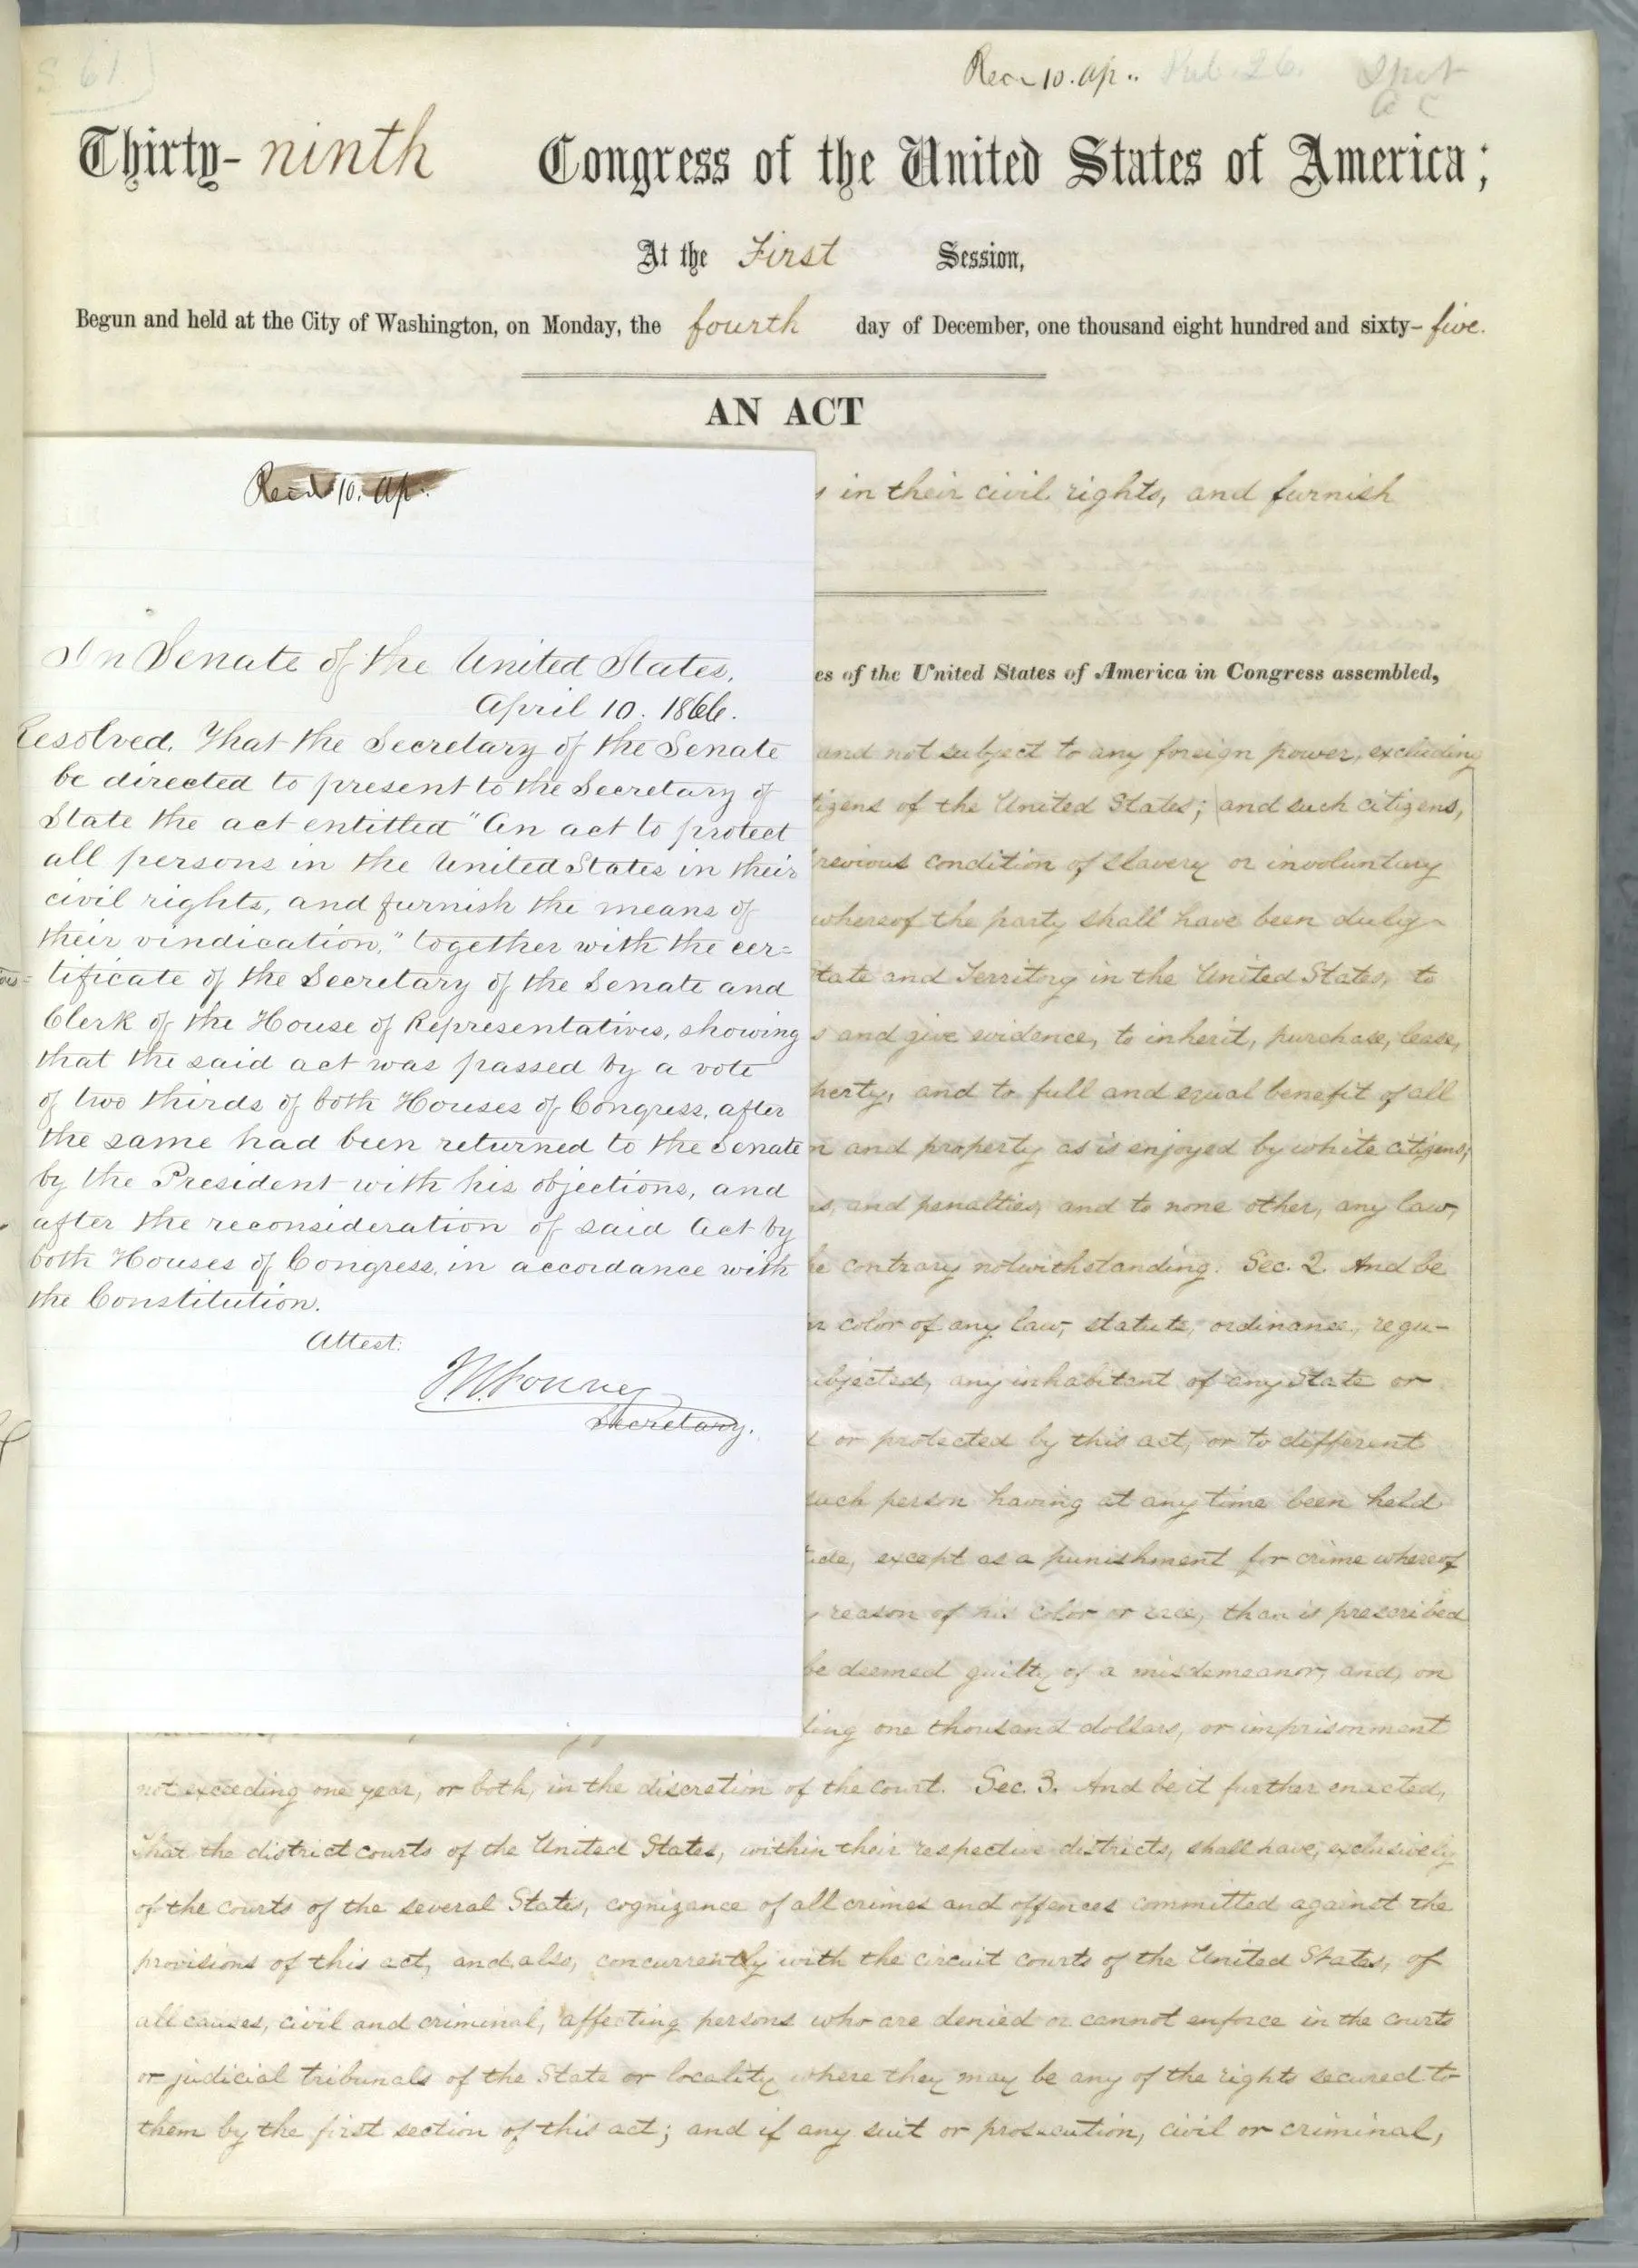 Recd 10. Ap.
Thirty-ninth Congress of the United States of America;
At the First Session,
Begun and held at the City of Washington, on Monday, the fourth day of December, one thousand eight hundred and sixty-five.
AN ACT
Recd 10. Ap.
In Senate of the United States,
April 10. 1866.
Resolved. That the Secretary of the Senate
be directed to present to the Secretary of
State the act entitled "An act to protect
all persons in the United States in their
civil rights, and furnish the means of
their vindication," together with the cer=
tificate of the Secretary of the Senate and
Clerk of the House of Representatives, showing
that the said act was passed by a vote
of two thirds of both Houses of Congress, after
the same had been returned to the Senate
by the President with his objections, and
after the reconsideration of said Act by
both Houses of Congress, in accordance with
the Constitution.
Attest:
J.W. Forney
Secretary.
in their civil rights, and furnish
es of the United States of America in Congress assembled,
and not subject to any foreign power, excluding
tizens of the United States; and such citizens,
previous condition of slavery or involuntary
whereof the party shall have been duly
State and Territory in the United States, to
and give evidence, to inherit, purchase, lease,
perty, and to full and equal benefit of all
n and property as is enjoyed by white citizens,
es, and penalties, and to none other, any law,
he contrary notwithstanding. Sec. 2. And be
color of any law, statute, ordinance, regu-
ubjected, any inhabitant of any State or
or protected by this act, or to different
such person having at any time been held
tude, except as a punishment for crime whereof
reason of his color or race, than is prescribed
be deemed guilty of a misdemeanor, and, on
ding one thousand dollars, or imprisonment
not exceeding one year, or both, in the discretion of the court. Sec. 3. And be it further enacted,
That the district courts of the United States, within their respective districts, shall have, exclusively
of the courts of the several States, cognizance of all crimes and offences committed against the
provisions of this act, and also, concurrently with the circuit courts of the United States, of
all causes, civil and criminal, affecting persons who are denied or cannot enforce in the courts
or judicial tribunals of the State or locality where they may be any of the rights secured to
them by the first section of this act; and if any suit or prosecution, civil or criminal,